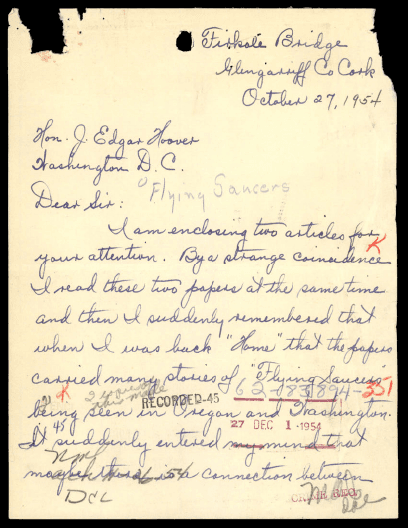 Firkole Bridge
Glengarriff Co Cork
October 27, 1954
Hon. J. Edgar Hoover
Washington D. C.
Dear Sir:
Flying Saucers
I am enclosing two articles for
your attention. By a strange coincidence
I read these two papers at the same time
and then I suddenly remembered that
when I was back "Home" that the papers
carried many stories of "Flying Saucers"
62-83894-351
RECORDED-45
being seen in Oregon and Washington.
27 DEC 1-1954
45
It suddenly entered my mind that
maybe there is a connection between
DCL